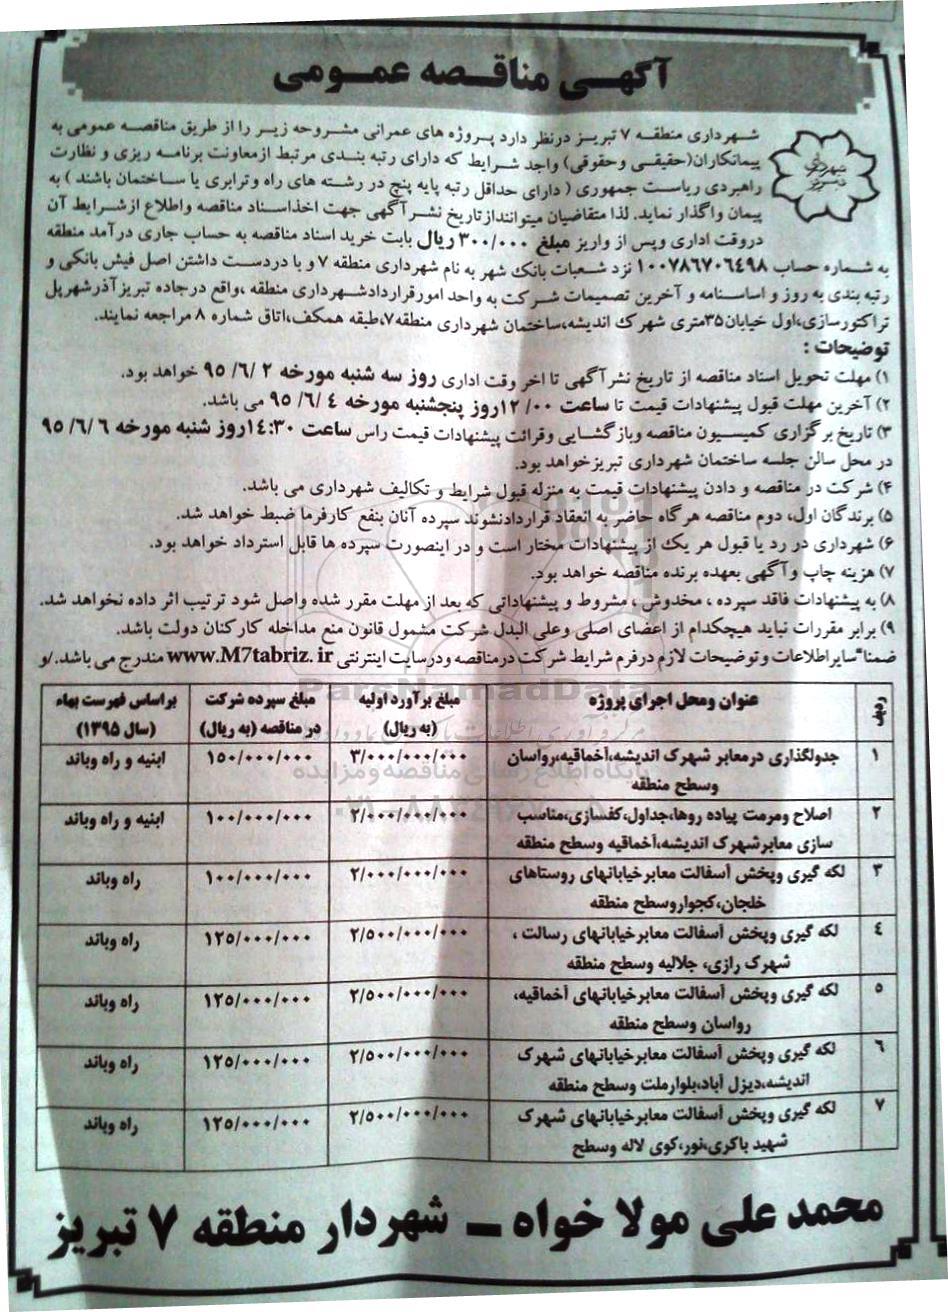 آگهی مناقصه عمومی
شهرداری تبریز
شهرداری منطقه ۷ تبریز درنظر دارد پروژه های عمرانی مشروحه زیر را از طریق مناقصه عمومی به
پیمانکاران(حقیقی وحقوقی) واجد شرایط که دارای رتبه بندی مرتبط ازمعاونت برنامه ریزی و نظارت
راهبردی ریاست جمهوری ( دارای حداقل رتبه پایه پنج در رشته های راه وترابری یا ساختمان باشند ) به
پیمان واگذار نماید. لذا متقاضیان میتوانندازتاریخ نشرآگهی جهت اخذاسناد مناقصه واطلاع ازشرایط آن
دروقت اداری وپس از واریز مبلغ ۳۰۰/۰۰۰ ریال بابت خرید اسناد مناقصه به حساب جاری درآمد منطقه
به شماره حساب ۱۰۰۷۸۶۷۰۶۴۹۸ نزد شعبات بانک شهر به نام شهرداری منطقه ۷ و با دردست داشتن اصل فیش بانکی و
رتبه بندی به روز و اساسنامه و آخرین تصمیمات شرکت به واحد امورقراردادشهرداری منطقه ،واقع درجاده تبریزآذرشهرپل
تراکتورسازی،اول خیابان۳۵متری شهرک اندیشه،ساختمان شهرداری منطقه۷،طبقه همکف،اتاق شماره ۸ مراجعه نمایند.
توضیحات :
۱) مهلت تحویل اسناد مناقصه از تاریخ نشرآگهی تا اخر وقت اداری روز سه شنبه مورخه ۲ /۶/ ۹۵ خواهد بود.
۲) آخرین مهلت قبول پیشنهادات قیمت تا ساعت ۰۰/ ۱۲روز پنجشنبه مورخه ۴ /۶/ ۹۵ می باشد.
۳) تاریخ برگزاری کمیسیون مناقصه وبازگشایی وقرائت پیشنهادات قیمت راس ساعت ۱۴:۳۰روز شنبه مورخه ۶ /۶/ ۹۵
در محل سالن جلسه ساختمان شهرداری تبریزخواهد بود.
۴) شرکت در مناقصه و دادن پیشنهادات قیمت به منزله قبول شرایط و تکالیف شهرداری می باشد.
۵) برندگان اول، دوم مناقصه هرگاه حاضر به انعقاد قراردادنشوند سپرده آنان بنفع کارفرما ضبط خواهد شد.
۶) شهرداری در رد یا قبول هر یک از پیشنهادات مختار است و در اینصورت سپرده ها قابل استرداد خواهد بود.
۷) هزینه چاپ وآگهی بعهده برنده مناقصه خواهد بود.
۸) به پیشنهادات فاقد سپرده ، مخدوش ، مشروط و پیشنهاداتی که بعد از مهلت مقرر شده واصل شود ترتیب اثر داده نخواهد شد.
۹) برابر مقررات نباید هیچکدام از اعضای اصلی وعلی البدل شرکت مشمول قانون منع مداخله کارکنان دولت باشد.
ضمنا"سایراطلاعات وتوضیحات لازم درفرم شرایط شرکت درمناقصه ودرسایت اینترنتی www.M7tabriz.ir مندرج می باشد./و
ParsNamadData
پایگاه اطلاع رسانی مناقصه و مزایده
ردیف عنوان ومحل اجرای پروژه مبلغ برآورد اولیه (به ریال) مبلغ سپرده شرکت در مناقصه (به ریال) براساس فهرست بهاء (سال ۱۳۹۵)
۱ جدولگذاری درمعابر شهرک اندیشه،آخماقیه،رواسان ۳/۰۰۰/۰۰۰/۰۰۰ ۱۵۰/۰۰۰/۰۰۰ ابنیه و راه وباند
وسطح منطقه
۲ اصلاح ومرمت پیاده روها،جداول،کفسازی،مناسب ۲/۰۰۰/۰۰۰/۰۰۰ ۱۰۰/۰۰۰/۰۰۰ ابنیه و راه وباند
سازی معابرشهرک اندیشه،آخماقیه وسطح منطقه
۳ لکه گیری وپخش آسفالت معابرخیابانهای روستاهای ۲/۰۰۰/۰۰۰/۰۰۰ ۱۰۰/۰۰۰/۰۰۰ راه وباند
خلجان،کجواروسطح منطقه
۴ لکه گیری وپخش آسفالت معابرخیابانهای رسالت ، ۲/۵۰۰/۰۰۰/۰۰۰ ۱۲۵/۰۰۰/۰۰۰ راه وباند
شهرک رازی، جلالیه وسطح منطقه
۵ لکه گیری وپخش آسفالت معابرخیابانهای آخماقیه، ۲/۵۰۰/۰۰۰/۰۰۰ ۱۲۵/۰۰۰/۰۰۰ راه وباند
رواسان وسطح منطقه
۶ لکه گیری وپخش آسفالت معابرخیابانهای شهرک ۲/۵۰۰/۰۰۰/۰۰۰ ۱۲۵/۰۰۰/۰۰۰ راه وباند
اندیشه،دیزل آباد،بلوارملت وسطح منطقه
۷ لکه گیری وپخش آسفالت معابرخیابانهای شهرک ۲/۵۰۰/۰۰۰/۰۰۰ ۱۲۵/۰۰۰/۰۰۰ راه وباند
شهید باکری،نور،کوی لاله وسطح
محمد علی مولا خواه – شهردار منطقه ۷ تبریز